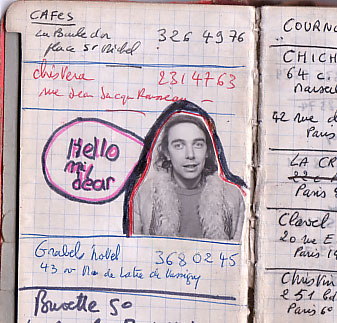 CAFES
La Boule d'or 326 49 76
place St Michel
chez Vera 231 47 63
rue Jean Jacques Rousseau
Hello
mi
dear
Grabels hotel 368 02 45
43 de Lattre de Tassigny
Buvette 50
COURNO
CHICH
64 c.
Marseil
42 rue d
Paris
LA CR
Paris
Clavel
20 rue E
Paris 19
Christin
251 bd
Paris 60